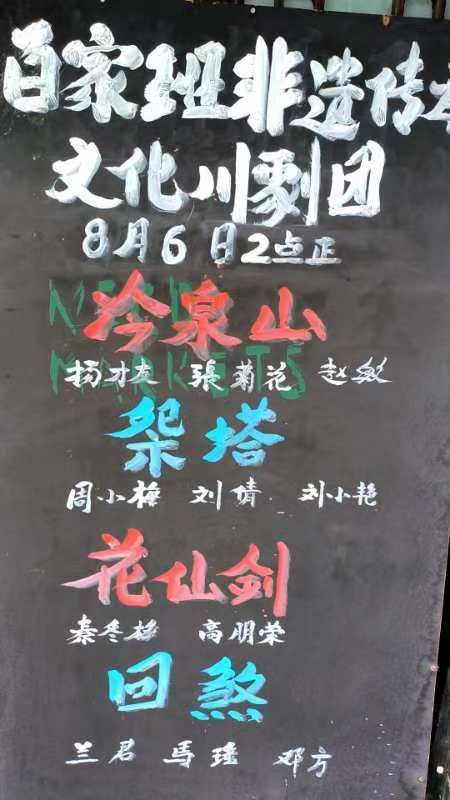 百家班非遗传承
文化川剧团
8月6日2点正
冷泉山
杨才友 張菊花 赵敏
祭塔
周小梅 刘倩 刘小艳
花仙剑
秦冬梅 高明荣
回煞
兰君 馬瑶 邓方